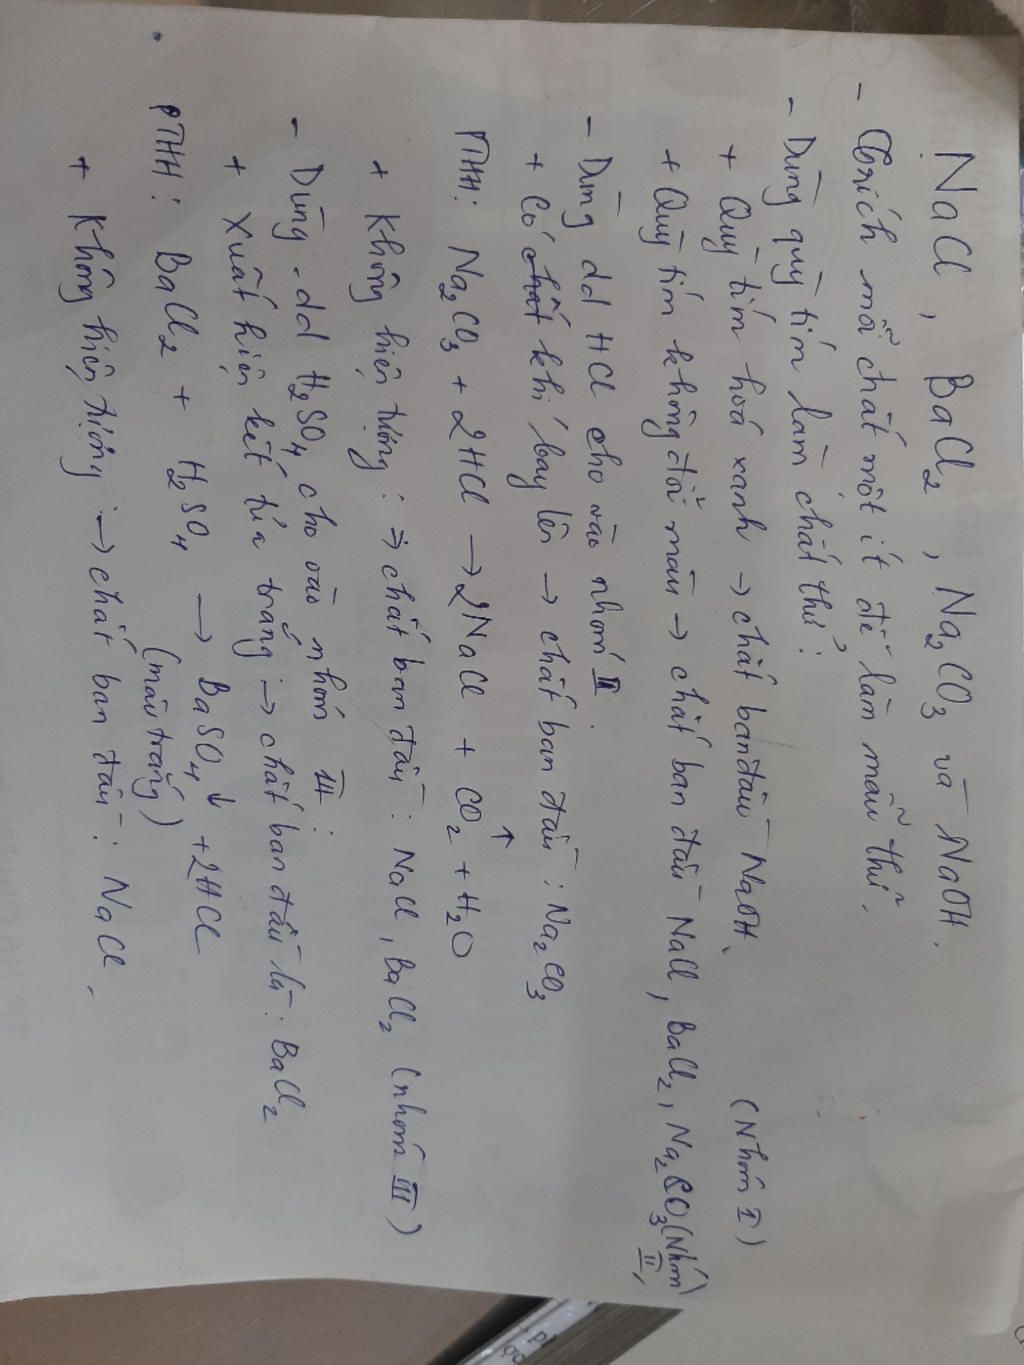 NaCl, BaCl2, Na2CO3 và NaOH.
- Trích mỗi chất một ít để làm mẫu thử.
- Dùng quỳ tím làm chất thử:
+ Quỳ tím hoá xanh → chất ban đầu NaOH. (Nhóm I)
+ Quỳ tím không đổi màu → chất ban đầu NaCl, BaCl2, Na2CO3 (Nhóm II)
- Dùng dd HCl cho vào nhóm II:
+ Có chất khí bay lên → chất ban đầu: Na2CO3
PTHH: Na2CO3 + 2HCl → 2NaCl + CO2↑ + H2O
+ Không hiện tượng: ⇒ chất ban đầu: NaCl, BaCl2 (nhóm III)
- Dùng dd H2SO4 cho vào nhóm III:
+ Xuất hiện kết tủa trắng → chất ban đầu là: BaCl2
PTHH: BaCl2 + H2SO4 → BaSO4↓ + 2HCl
(màu trắng)
+ Không hiện tượng → chất ban đầu: NaCl.